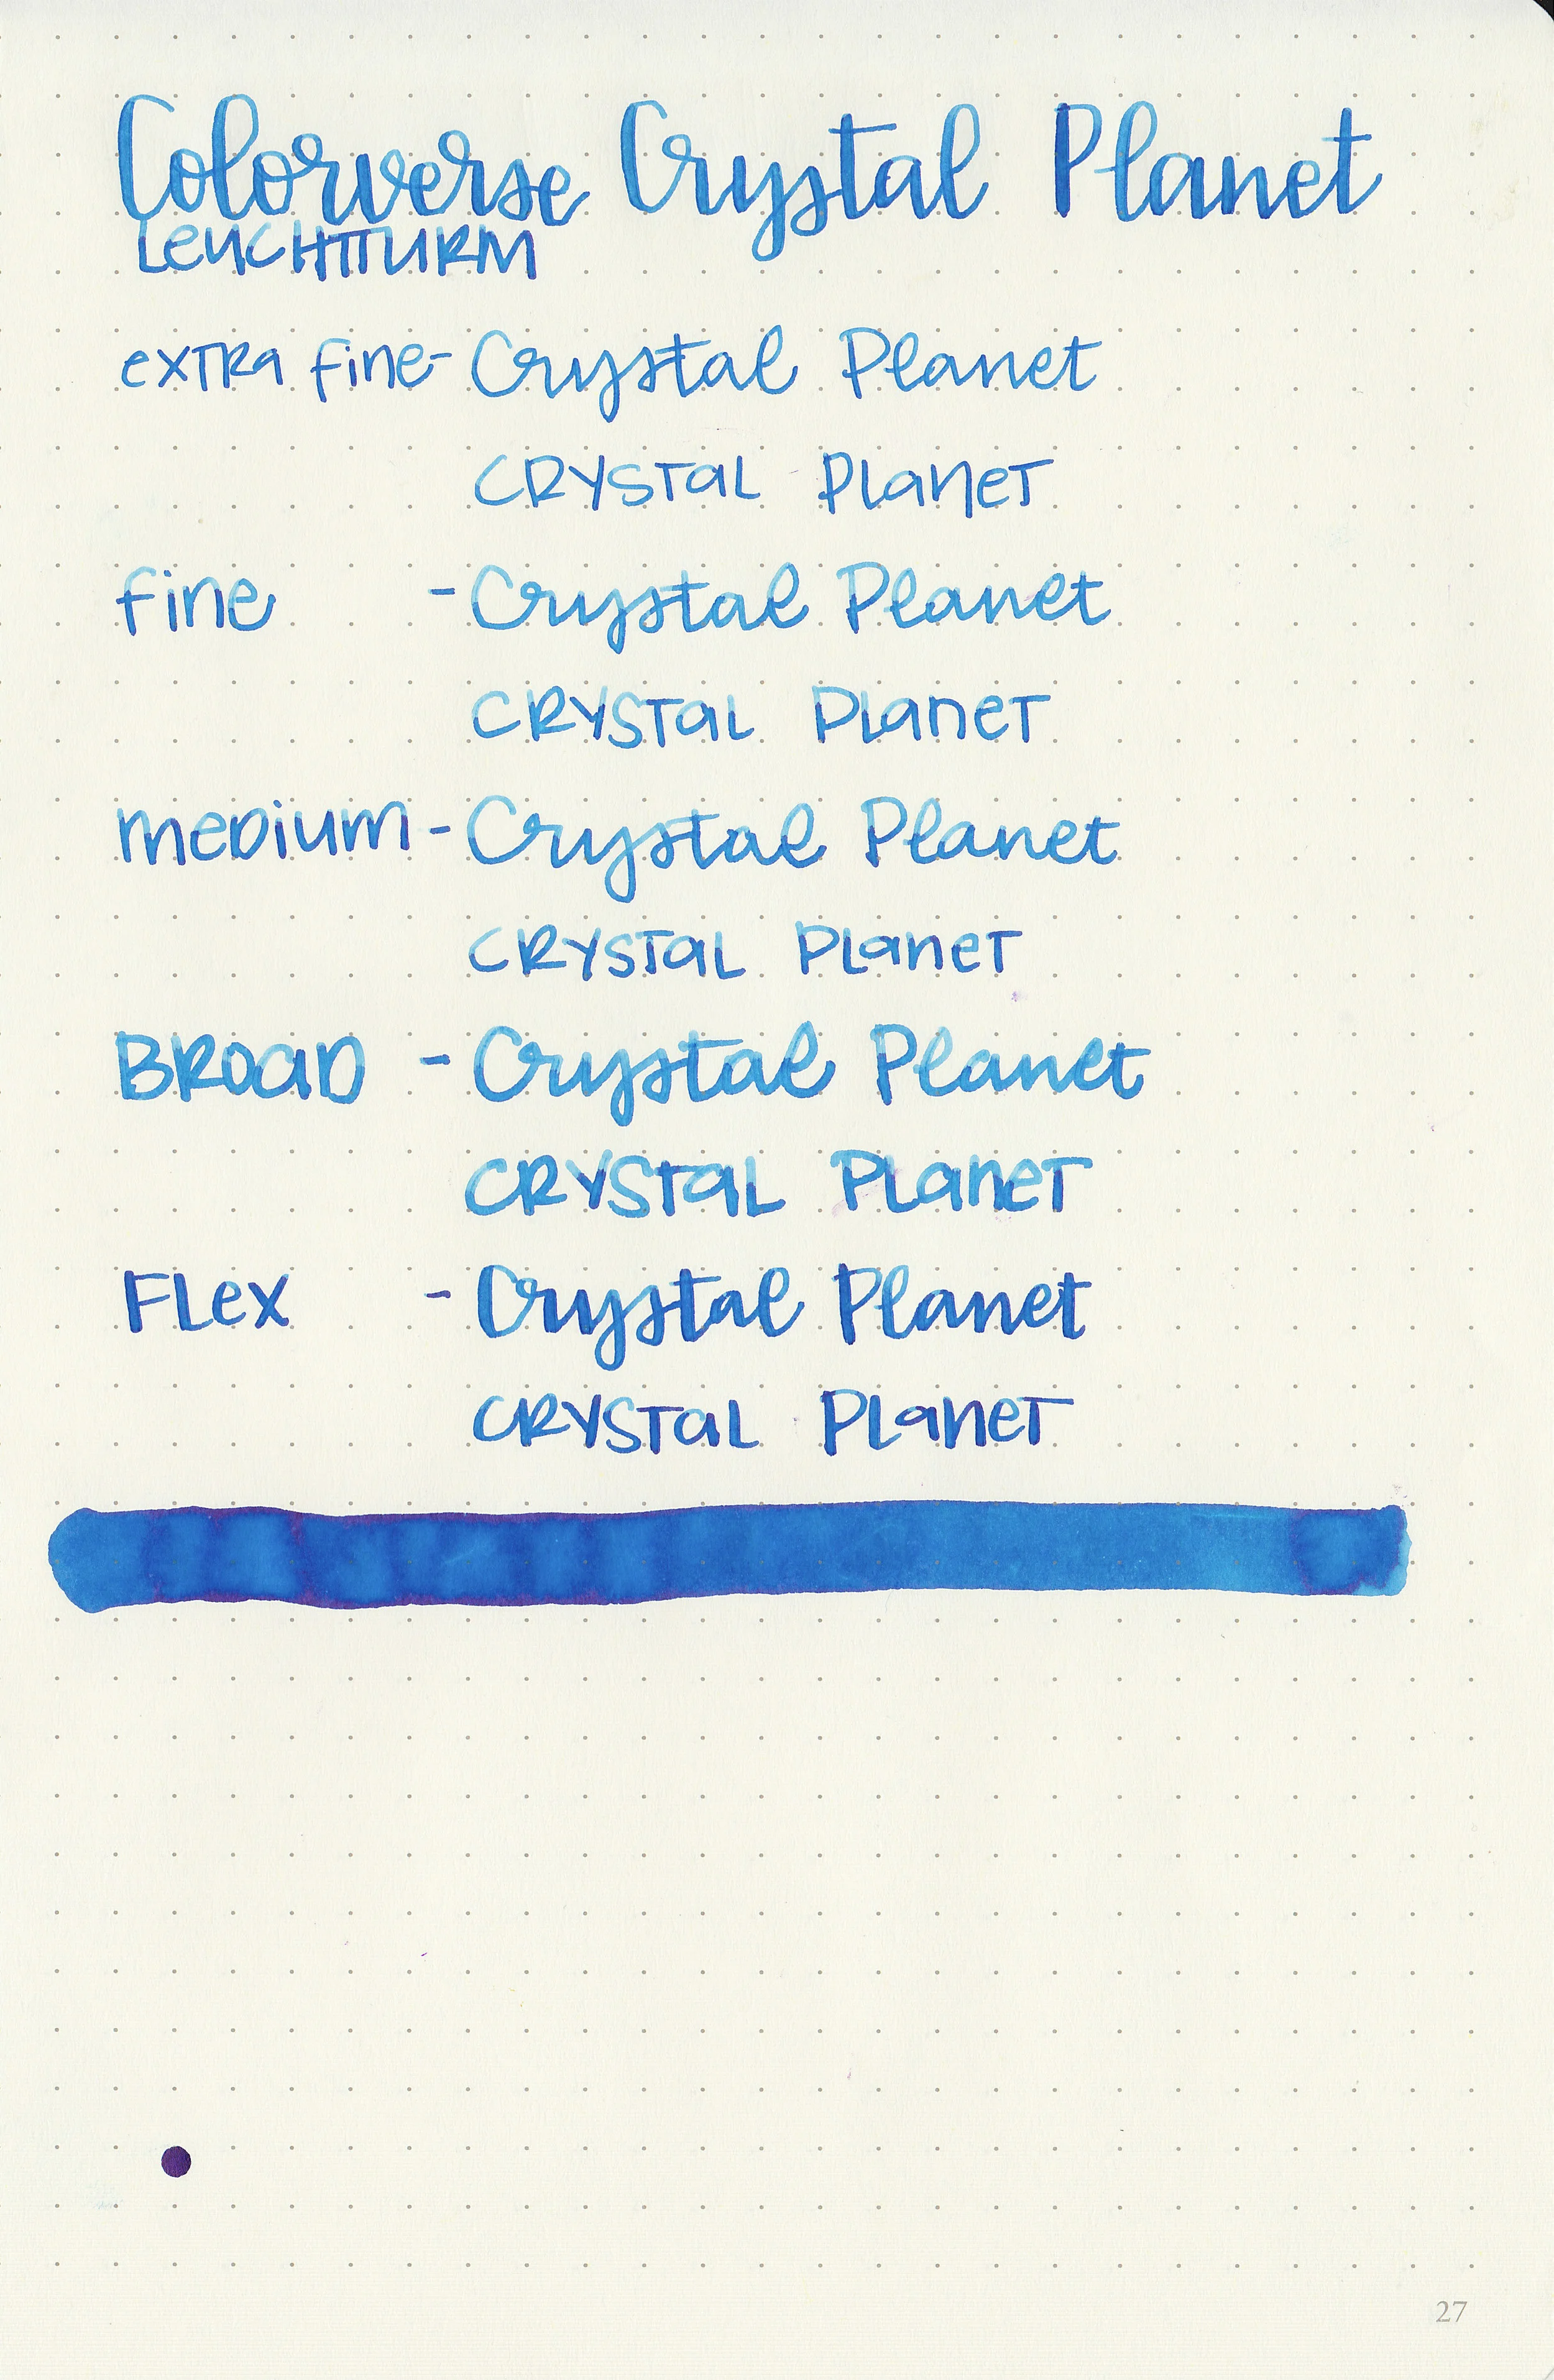 Colorverse Crystal Planet
LeUCHTTURM
exTRa fine - Crystal Planet
CRYSTaL PLaneT
fine - Crystal Planet
CRYSTaL PLaneT
meDium - Crystal Planet
CRYSTaL PLaneT
BROaD - Crystal Planet
CRYSTaL PLaneT
FLex - Crystal Planet
CRYSTaL PLaneT
27